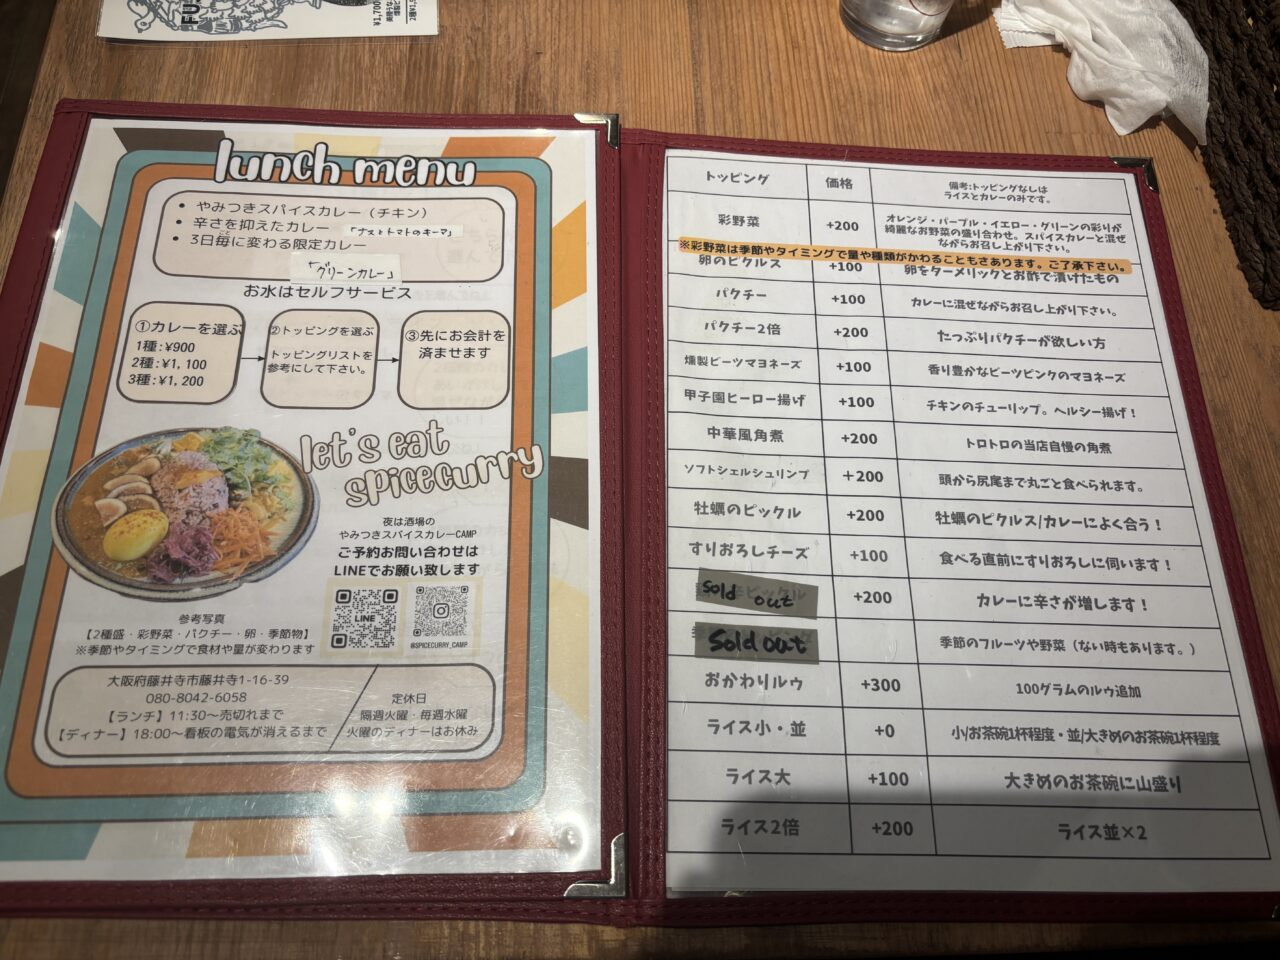 lunch menu
• やみつきスパイスカレー（チキン）
• 辛さを抑えたカレー 「ナスとトマトのキーマ」
• 3日毎に変わる限定カレー
「グリーンカレー」
お水はセルフサービス
①カレーを選ぶ
1種:¥900
2種:¥1,100
3種:¥1,200
②トッピングを選ぶ
トッピングリストを
参考にして下さい。
③先にお会計を
済ませます
let's eat
spicecurry
夜は酒場の
やみつきスパイスカレーCAMP
ご予約お問い合わせは
LINEでお願い致します
LINE
@SPICECURRY_CAMP
参考写真
【2種盛・彩野菜・パクチー・卵・季節物】
※季節やタイミングで食材や量が変わります
大阪府藤井寺市藤井寺1-16-39
080-8042-6058
【ランチ】11:30〜売切れまで
【ディナー】18:00〜看板の電気が消えるまで
定休日
隔週火曜・毎週水曜
火曜のディナーはお休み
トッピング 価格 備考:トッピングなしは
ライスとカレーのみです。
彩野菜 +200 オレンジ・パープル・イエロー・グリーンの彩りが
綺麗なお野菜の盛り合わせ。スパイスカレーと混ぜ
ながらお召し上がり下さい。
※彩野菜は季節やタイミングで量や種類がかわることもさあります。ご了承下さい。
卵のピクルス +100 卵をターメリックとお酢で漬けたもの
パクチー +100 カレーに混ぜながらお召し上がり下さい。
パクチー2倍 +200 たっぷりパクチーが欲しい方
燻製ビーツマヨネーズ +100 香り豊かなビーツピンクのマヨネーズ
甲子園ヒーロー揚げ +100 チキンのチューリップ。ヘルシー揚げ！
中華風角煮 +200 トロトロの当店自慢の角煮
ソフトシェルシュリンプ +200 頭から尻尾まで丸ごと食べられます。
牡蠣のピックル +200 牡蠣のピクルス/カレーによく合う！
すりおろしチーズ +100 食べる直前にすりおろしに伺います！
Sold out +200 カレーに辛さが増します！
Sold out 季節のフルーツや野菜（ない時もあります。）
おかわりルゥ +300 100グラムのルゥ追加
ライス小・並 +0 小/お茶碗1杯程度・並/大きめのお茶碗1杯程度
ライス大 +100 大きめのお茶碗に山盛り
ライス2倍 +200 ライス並×2